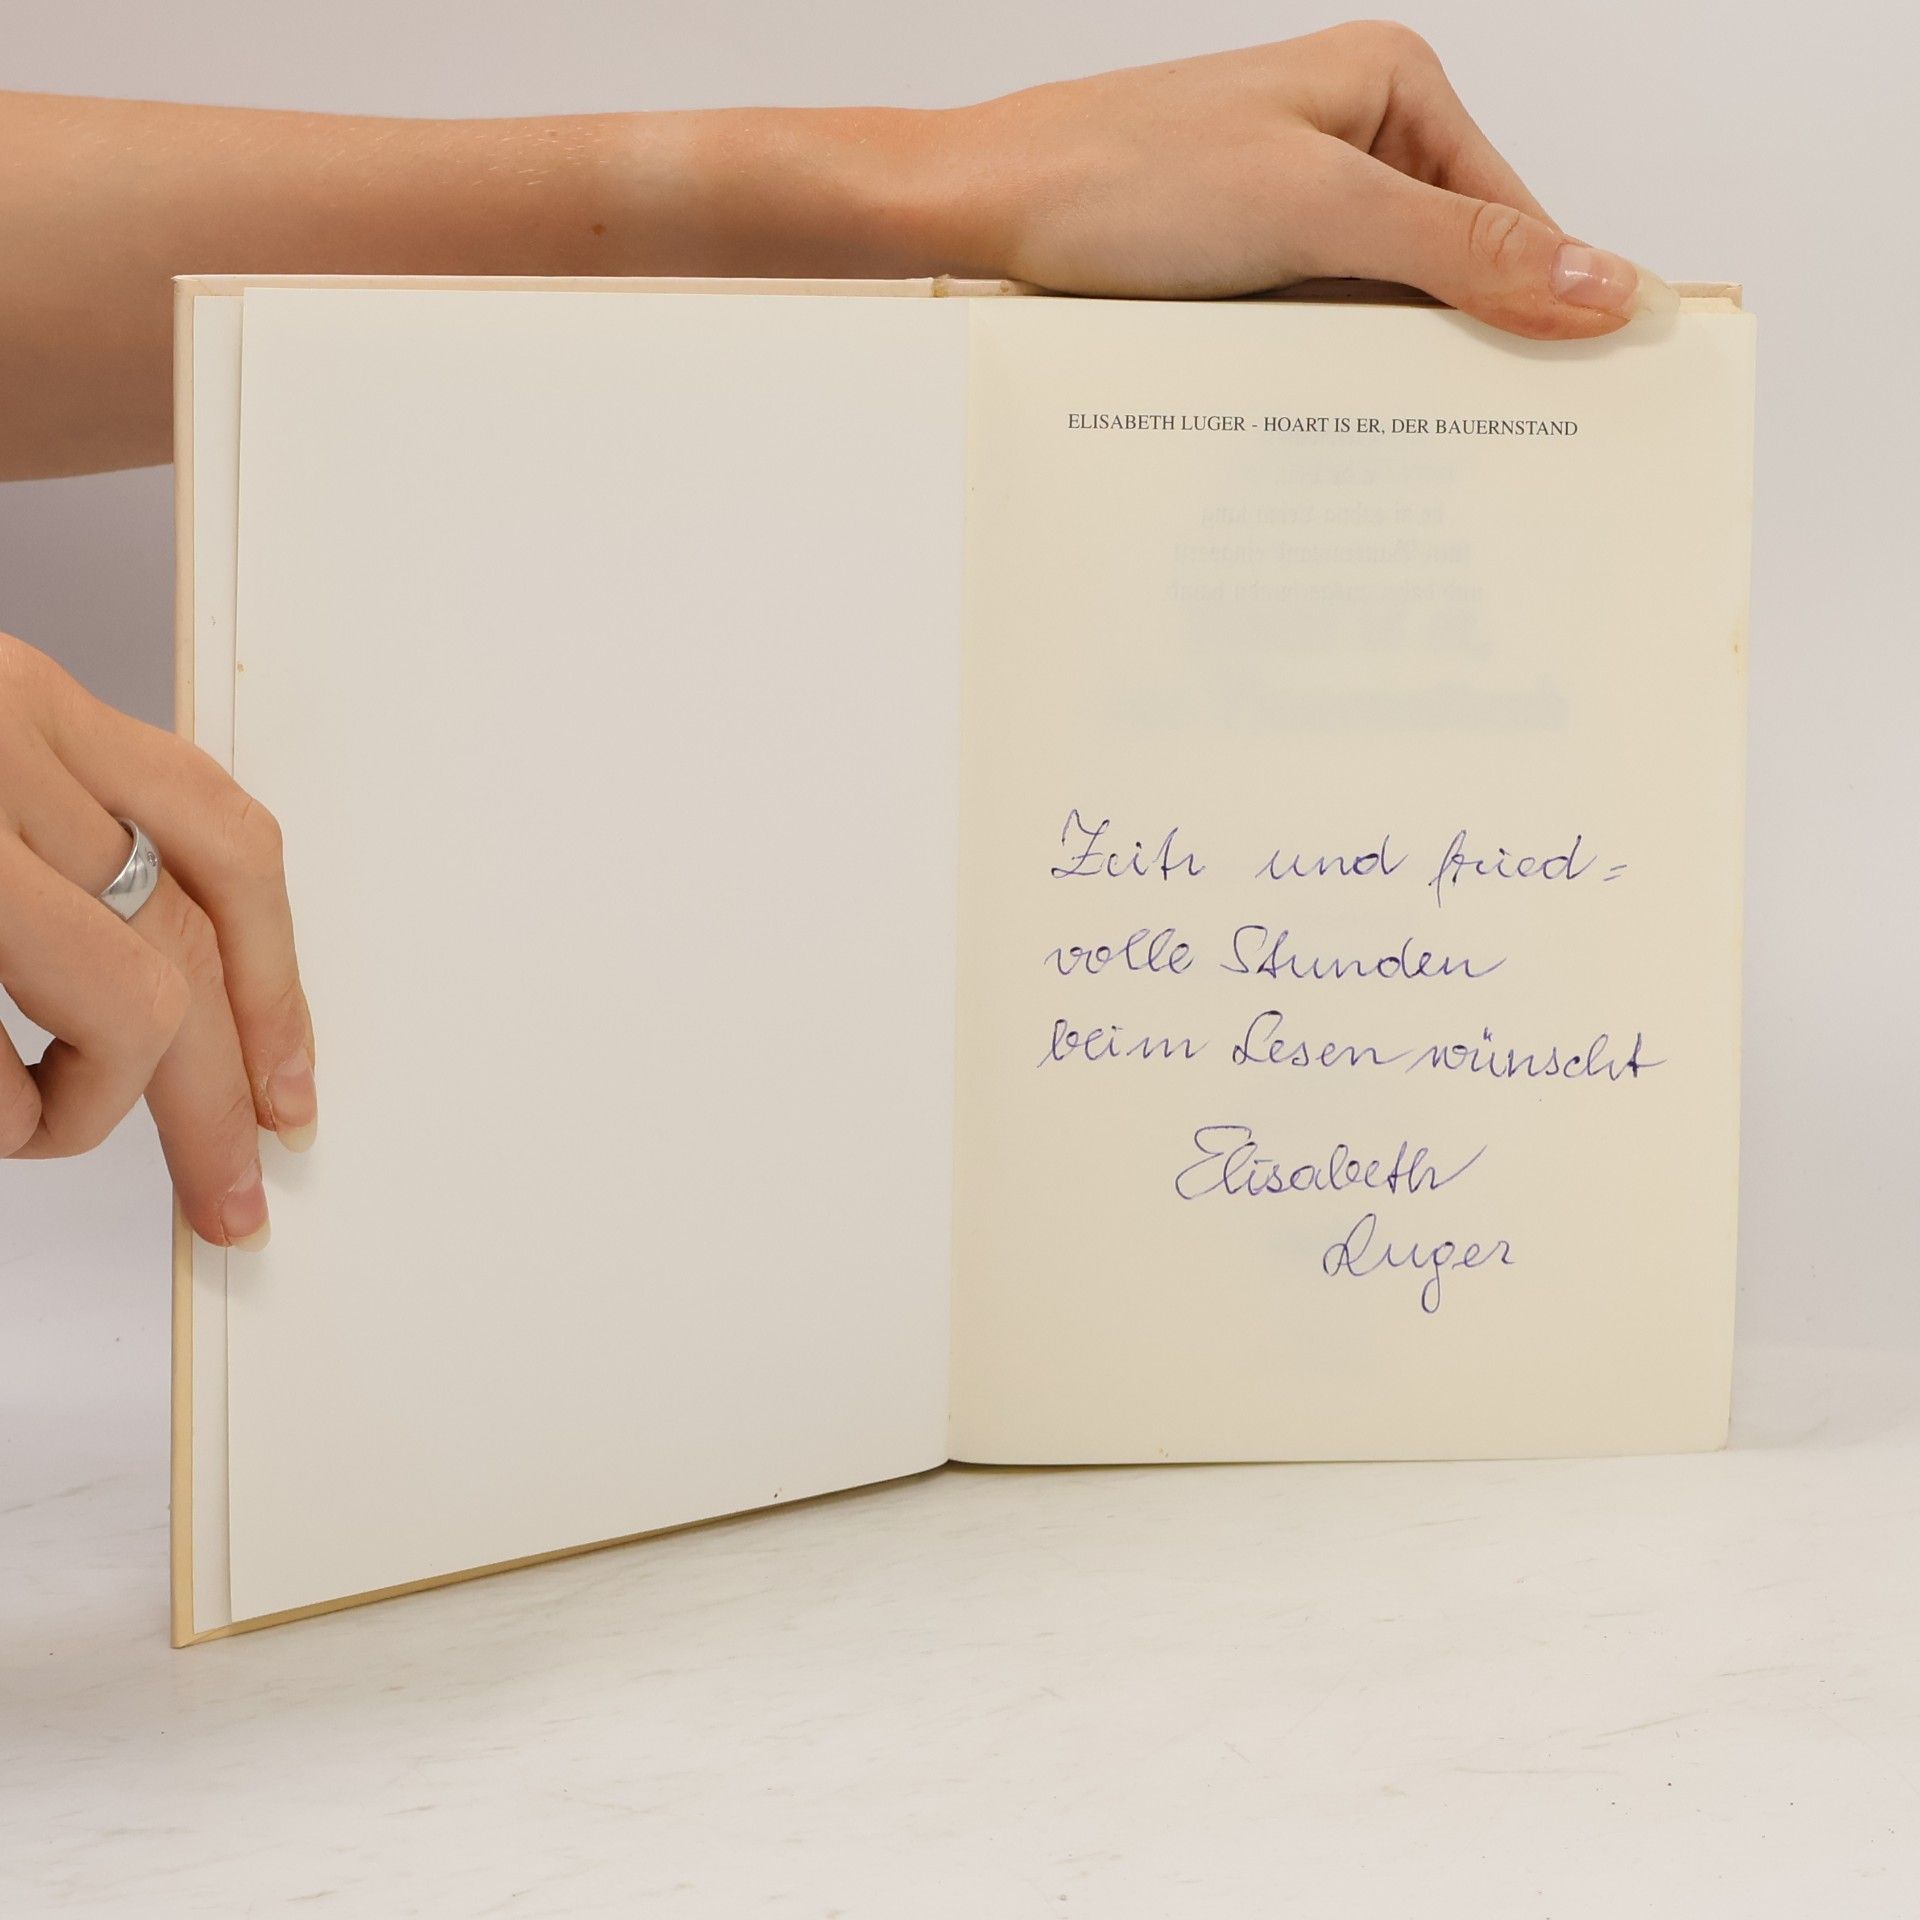 ELISABETH LUGER - HOART IS ER, DER BAUERNSTAND
Zeit und fried=
volle Stunden
beim Lesen wünscht
Elisabeth
Luger